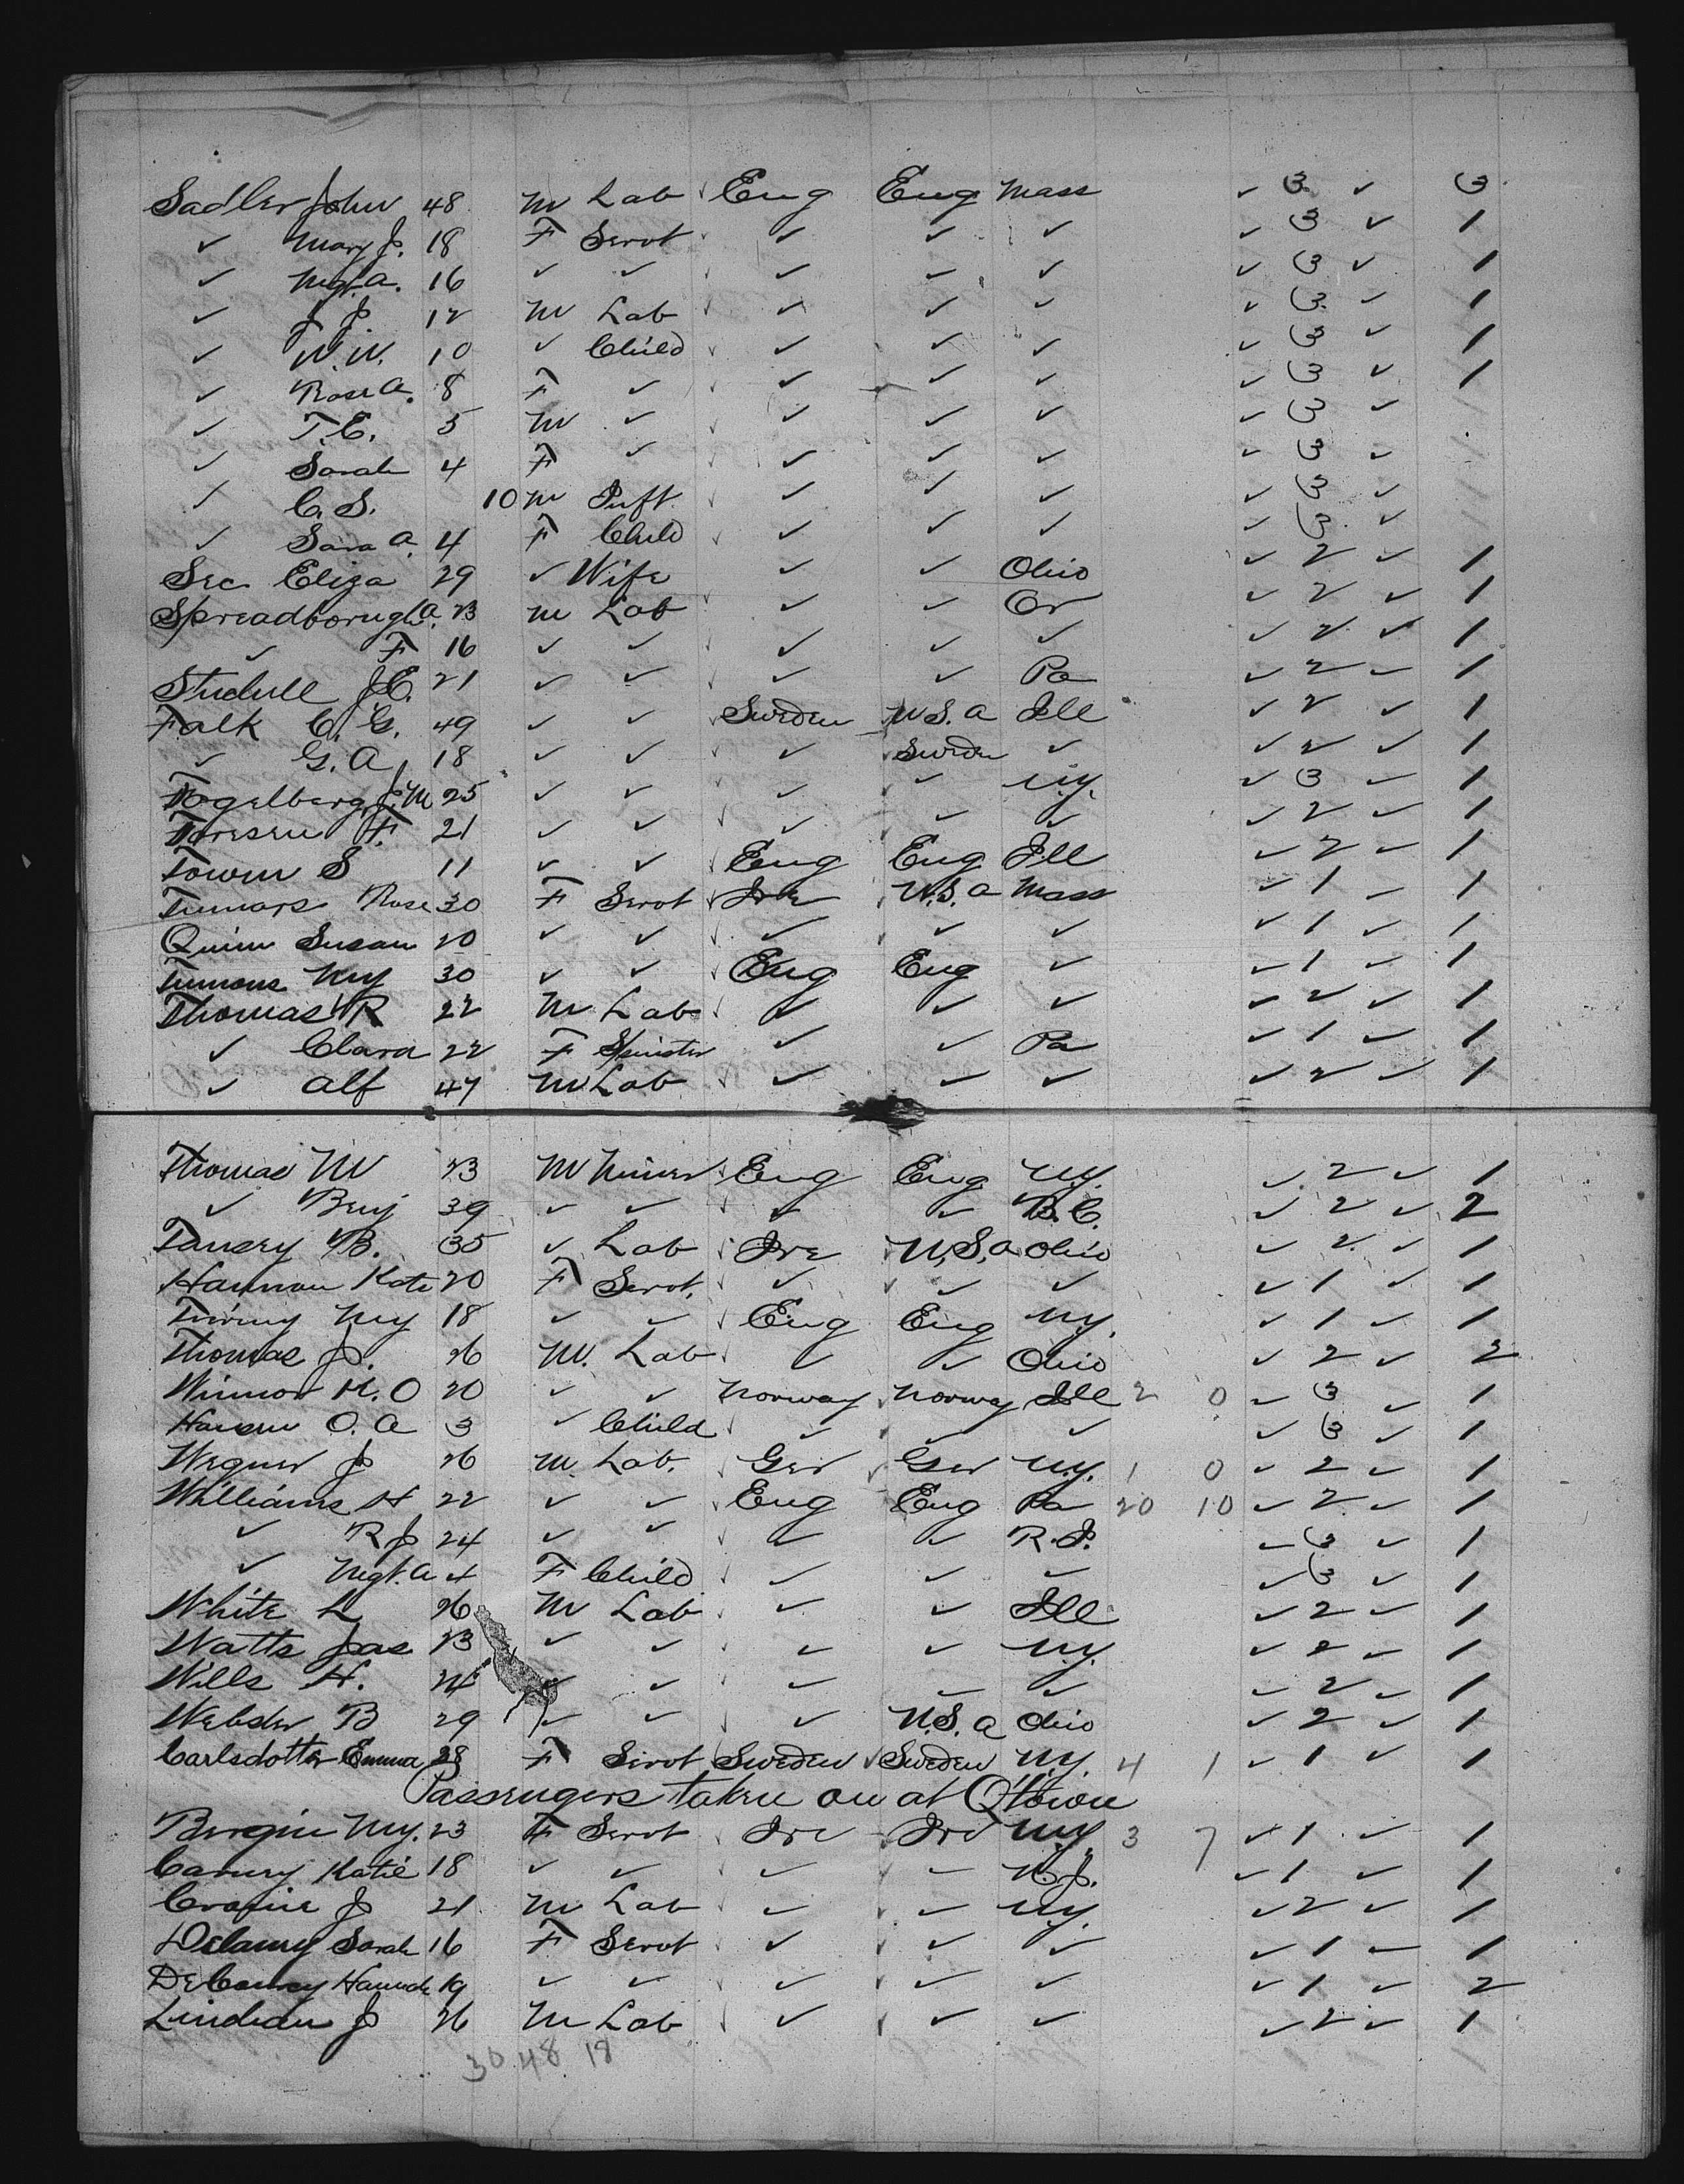 Sadler John 48 M Lab ✓ Eng Eng Mass ✓ 3 ✓ 3
✓ Mary J. 18 F Servt ✓ ✓ ✓ ✓ 3 ✓ 1
✓ Mgt. A. 16 ✓ ✓ ✓ ✓ ✓ ✓ 3 ✓ 1
✓ J. J. 12 M Lab ✓ ✓ ✓ ✓ 3 ✓ 1
✓ W. W. 10 ✓ Child ✓ ✓ ✓ ✓ 3 ✓ 1
✓ Rose A. 8 F ✓ ✓ ✓ ✓ ✓ 3 ✓ 1
✓ T. E. 5 M ✓ ✓ ✓ ✓ ✓ 3 ✓
✓ Sarah 4 F ✓ ✓ ✓ ✓ ✓ 3 ✓
✓ C. S. 10 M Inft. ✓ ✓ ✓ ✓ 3 ✓
✓ Sara A. 4 F Child ✓ ✓ ✓ ✓ 3 ✓
See Eliza 29 ✓ Wife ✓ ✓ Ohio ✓ 2 ✓ 1
Spreadborough A. 23 M Lab ✓ ✓ Or ✓ 2 ✓ 1
✓ F 16 ✓ ✓ ✓ ✓ ✓ ✓ 2 ✓ 1
J. E. 21 ✓ ✓ ✓ ✓ Pa ✓ 2 ✓ 1
Falk C. G. 49 ✓ ✓ Sweden U.S.A Ill ✓ 2 ✓ 1
✓ G. A. 18 ✓ ✓ ✓ Sweden ✓ ✓ 2 ✓ 1
Fogelberg J. M 25 ✓ ✓ ✓ ✓ N.Y. ✓ 3 ✓ 1
F. 21 ✓ ✓ ✓ ✓ ✓ ✓ 2 ✓ 1
S 11 ✓ ✓ Eng Eng Ill ✓ 2 ✓ 1
Rose 30 F Servt Ire U.S.A Mass ✓ 1 ✓ 1
Quinn Susan 20 ✓ ✓ ✓ ✓ ✓ ✓ 1 ✓ 1
My 30 ✓ ✓ Eng Eng ✓ ✓ 1 ✓ 1
Thomas R 22 M Lab ✓ ✓ ✓ ✓ 2 ✓ 1
✓ Clara 22 F Spinster ✓ ✓ Pa ✓ 1 ✓ 1
✓ Alf 47 M Lab ✓ ✓ ✓ ✓ 2 ✓ 1
Thomas W 23 M Miner Eng Eng N.Y. ✓ 2 ✓ 1
✓ Benj 39 ✓ ✓ ✓ ✓ B.C. ✓ 2 ✓ 2
Tansey B. 35 ✓ Lab Ire U.S.A Ohio ✓ 2 ✓ 1
Hannon Kate 20 F Servt. ✓ ✓ ✓ ✓ 1 ✓ 1
My 18 ✓ ✓ Eng Eng N.Y. ✓ 1 ✓ 1
Thomas J. 26 M. Lab ✓ ✓ Ohio ✓ 2 ✓ 2
H. O 20 ✓ ✓ Norway Norway Ill 2 0 ✓ 3 ✓ 1
Hansen O. A 3 ✓ Child ✓ ✓ ✓ ✓ 3 ✓ 1
Wegner J 26 M. Lab. Ger Ger N.Y. 1 0 ✓ 2 ✓ 1
Williams H 22 ✓ ✓ Eng Eng Pa 20 10 ✓ 2 ✓ 1
✓ R J 24 ✓ ✓ ✓ ✓ R. I. ✓ 3 ✓ 1
✓ Mgt. A 4 F Child ✓ ✓ ✓ ✓ 3 ✓ 1
White L 26 M Lab ✓ ✓ Ill ✓ 2 ✓ 1
Watts Jas 23 ✓ ✓ ✓ ✓ N.Y. ✓ 2 ✓ 1
Wills H. 24 ✓ ✓ ✓ ✓ ✓ ✓ 2 ✓ 1
Webster B 29 ✓ ✓ ✓ U.S.A Ohio ✓ 2 ✓ 1
Carlsdotter Emma 28 F Servt Sweden Sweden N.Y. 4 1 ✓ 1 ✓ 1
Passengers taken on at Q'town
Bergin My. 23 F Servt Ire Ire N.Y. 3 7 ✓ 1 ✓ 1
Katie 18 ✓ ✓ ✓ ✓ N.J. ✓ 1 ✓ 1
J 21 M Lab ✓ ✓ N.Y. ✓ 2 ✓ 1
Delaney Sarah 16 F Servt ✓ ✓ ✓ ✓ 1 ✓ 1
DeCourcy Hannah 19 ✓ ✓ ✓ ✓ ✓ ✓ 1 ✓ 2
J 26 M Lab ✓ ✓ ✓ ✓ 2 ✓ 1
30 48 18